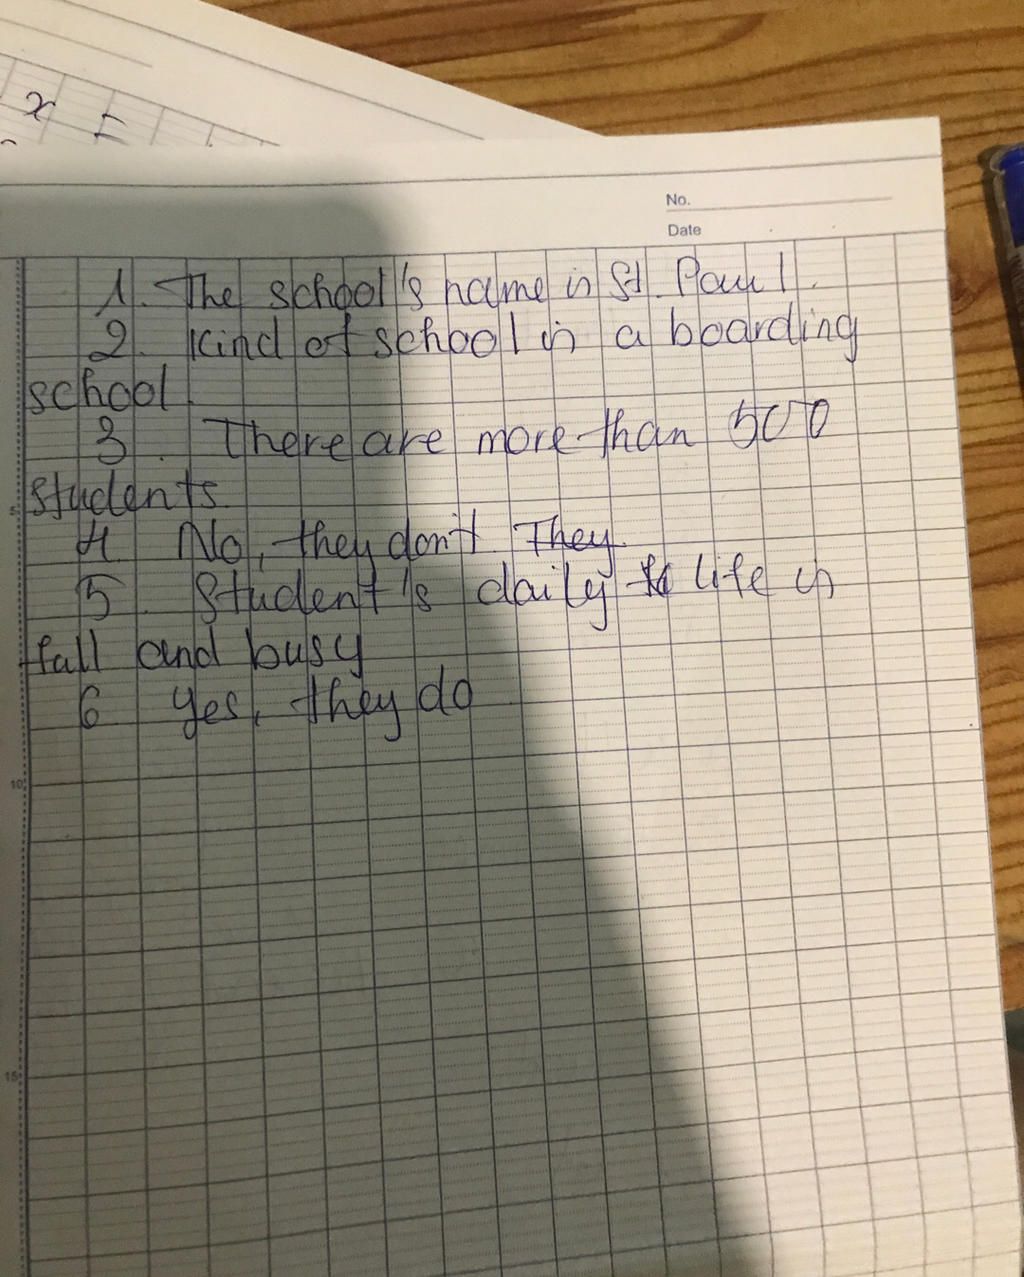 x t
No.
Date
1. The school's name is St. Paul.
2. Kind of school is a boarding
school.
3. There are more than 500
5
students.
4 No, they don't. They
5. Student's daily life is
full and busy
6 Yes, they do
10
15